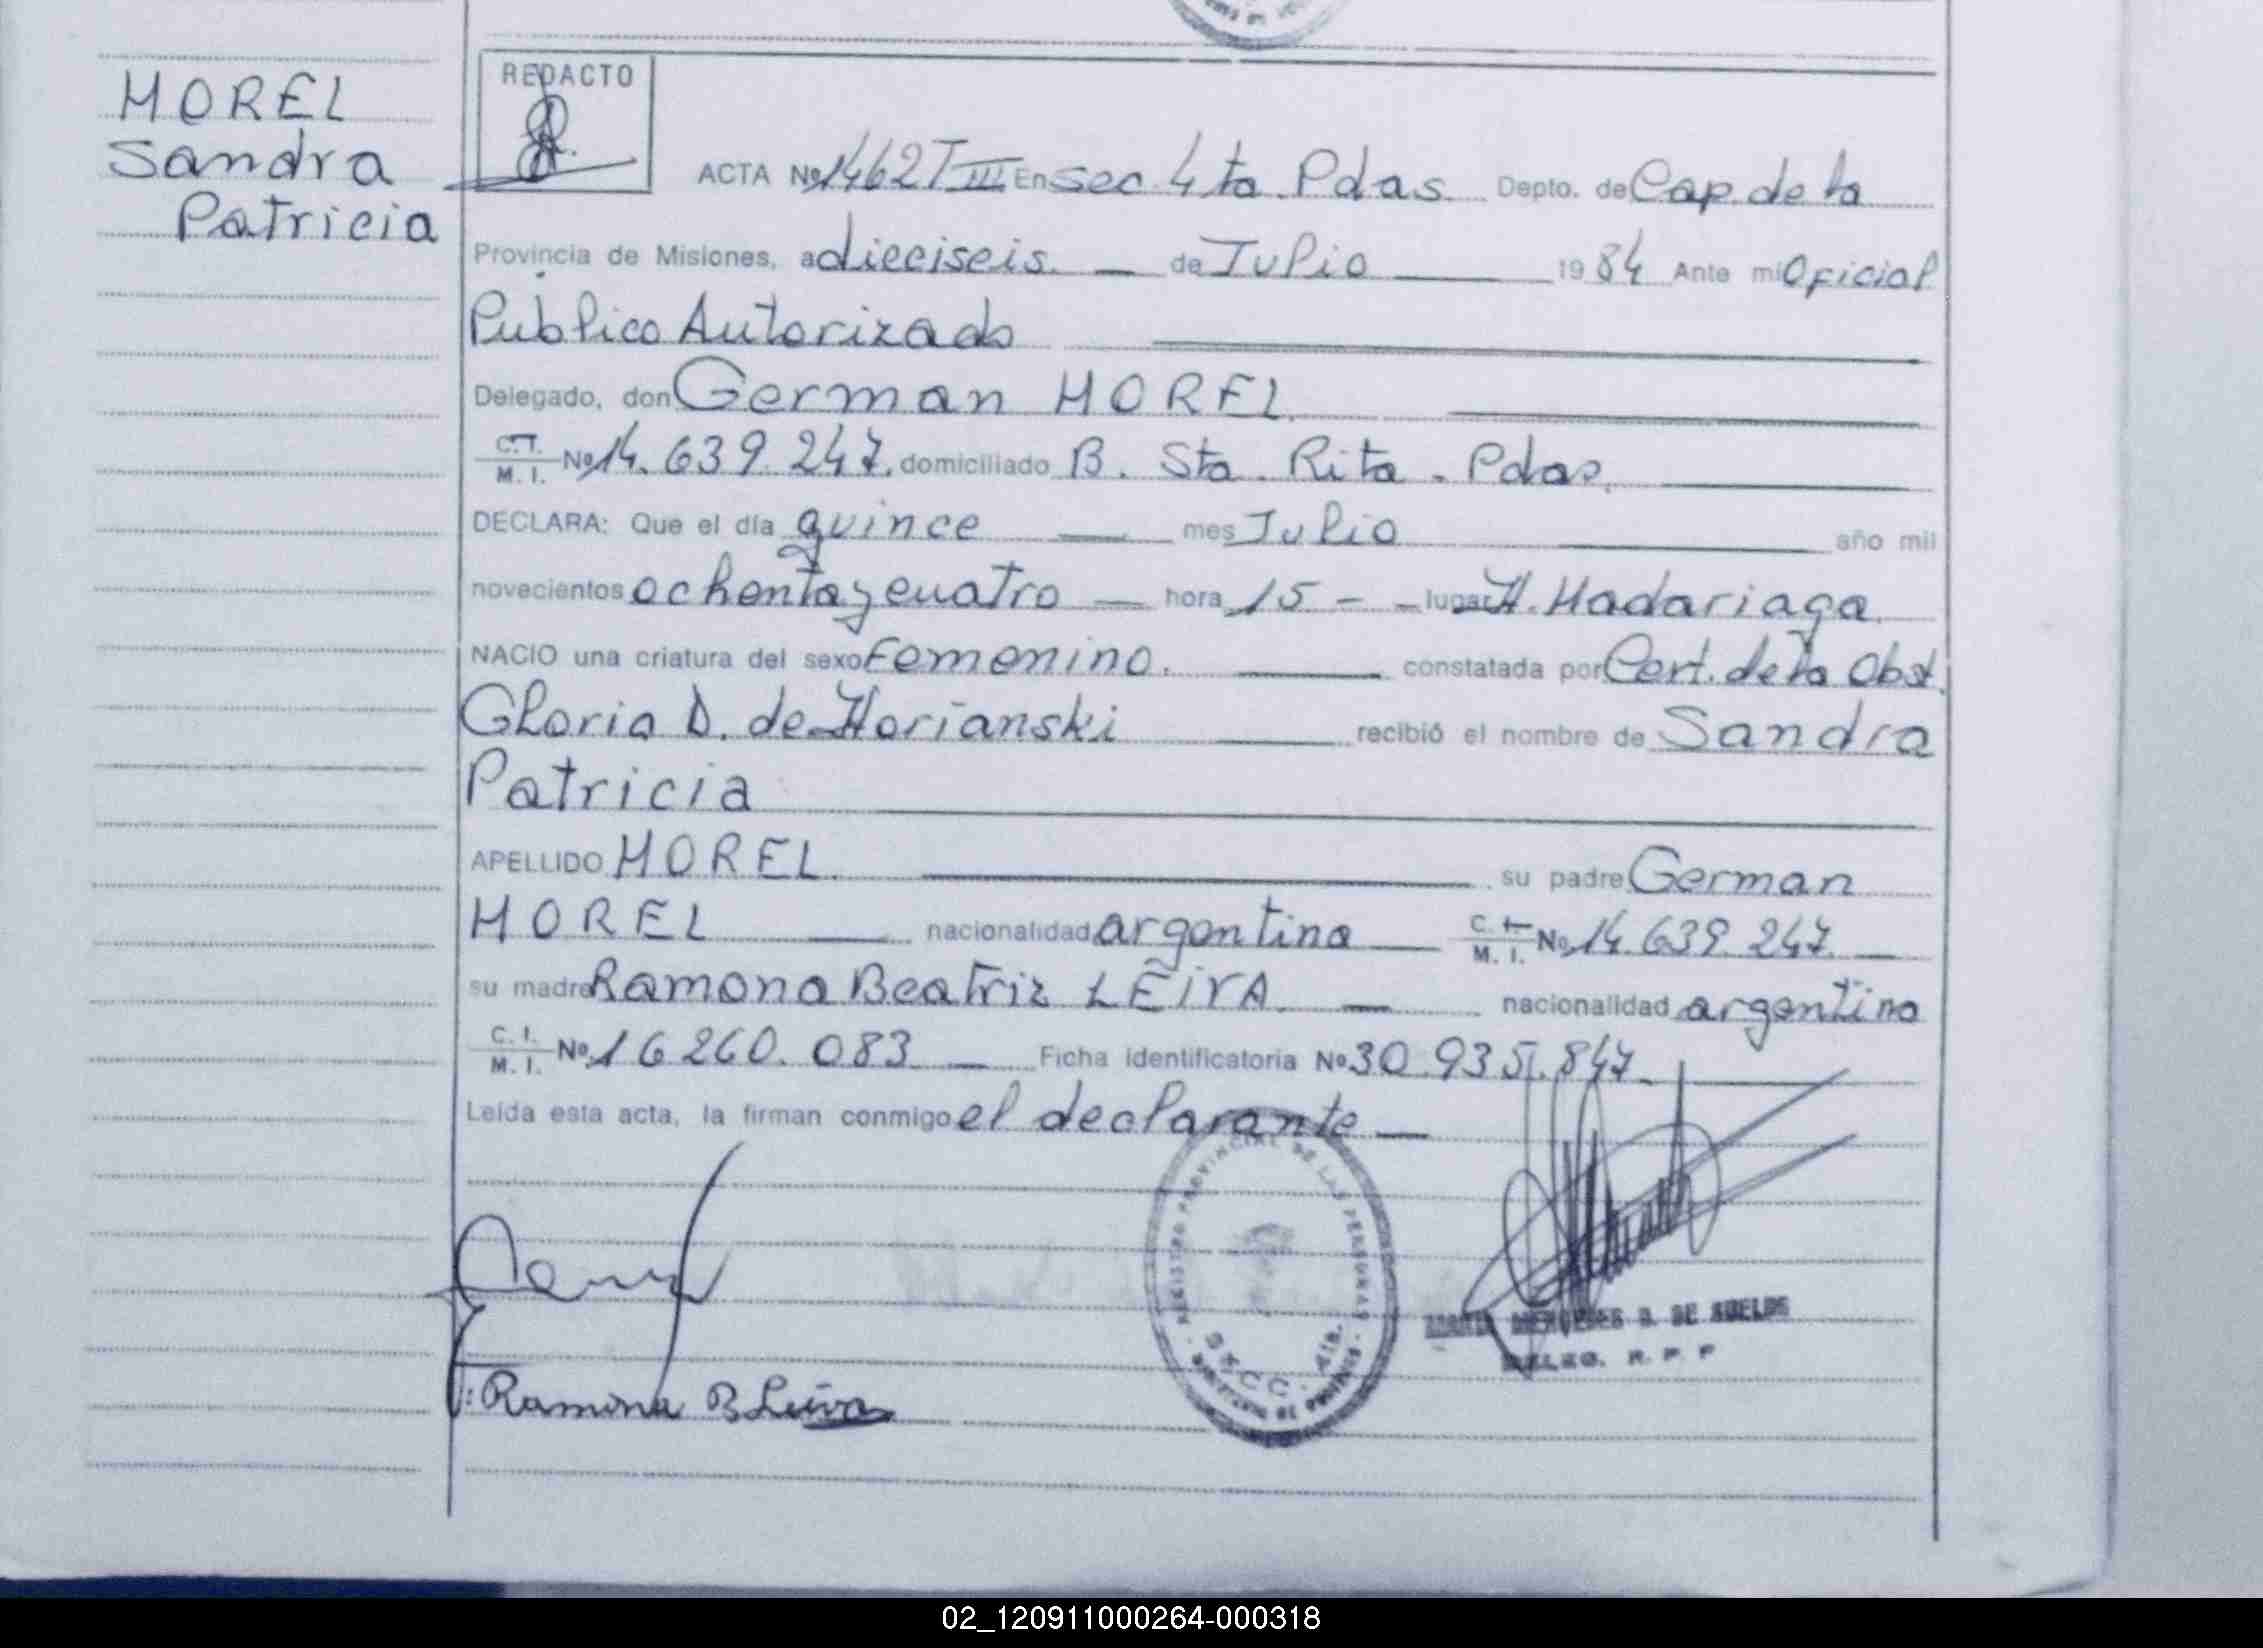 MOREL
Sandra
Patricia
REDACTO
ACTA Nº 1462 T III En Sec. 4ta. Pdas. Depto. de Cap. de la
Provincia de Misiones, a dieciseis de Julio 1984 Ante mi Oficial
Publico Autorizado
Delegado, don German MOREL
C.I. M. I. Nº 14.639.247. domiciliado B. Sta. Rita - Pdas.
DECLARA: Que el día quince mes Julio año mil
novecientos ochenta y cuatro hora 15 - lugar H. Madariaga.
NACIO una criatura del sexo Femenino. constatada por Cert. de la Obst.
Gloria D. de Horianski recibió el nombre de Sandra
Patricia
APELLIDO MOREL su padre German
MOREL nacionalidad argentina C. I. M. I. Nº 14.639.247.
su madre Ramona Beatriz LEIVA nacionalidad argentina
C. I. M. I. Nº 16.260.083 Ficha identificatoria Nº 30.935.847
Leída esta acta, la firman conmigo el declarante
REGISTRO PROVINCIAL DE LAS PERSONAS
SECC. 4ta.
MERCEDES B. DE
DELEG. R. P. P
Ramona B Leiva
02_120911000264-000318